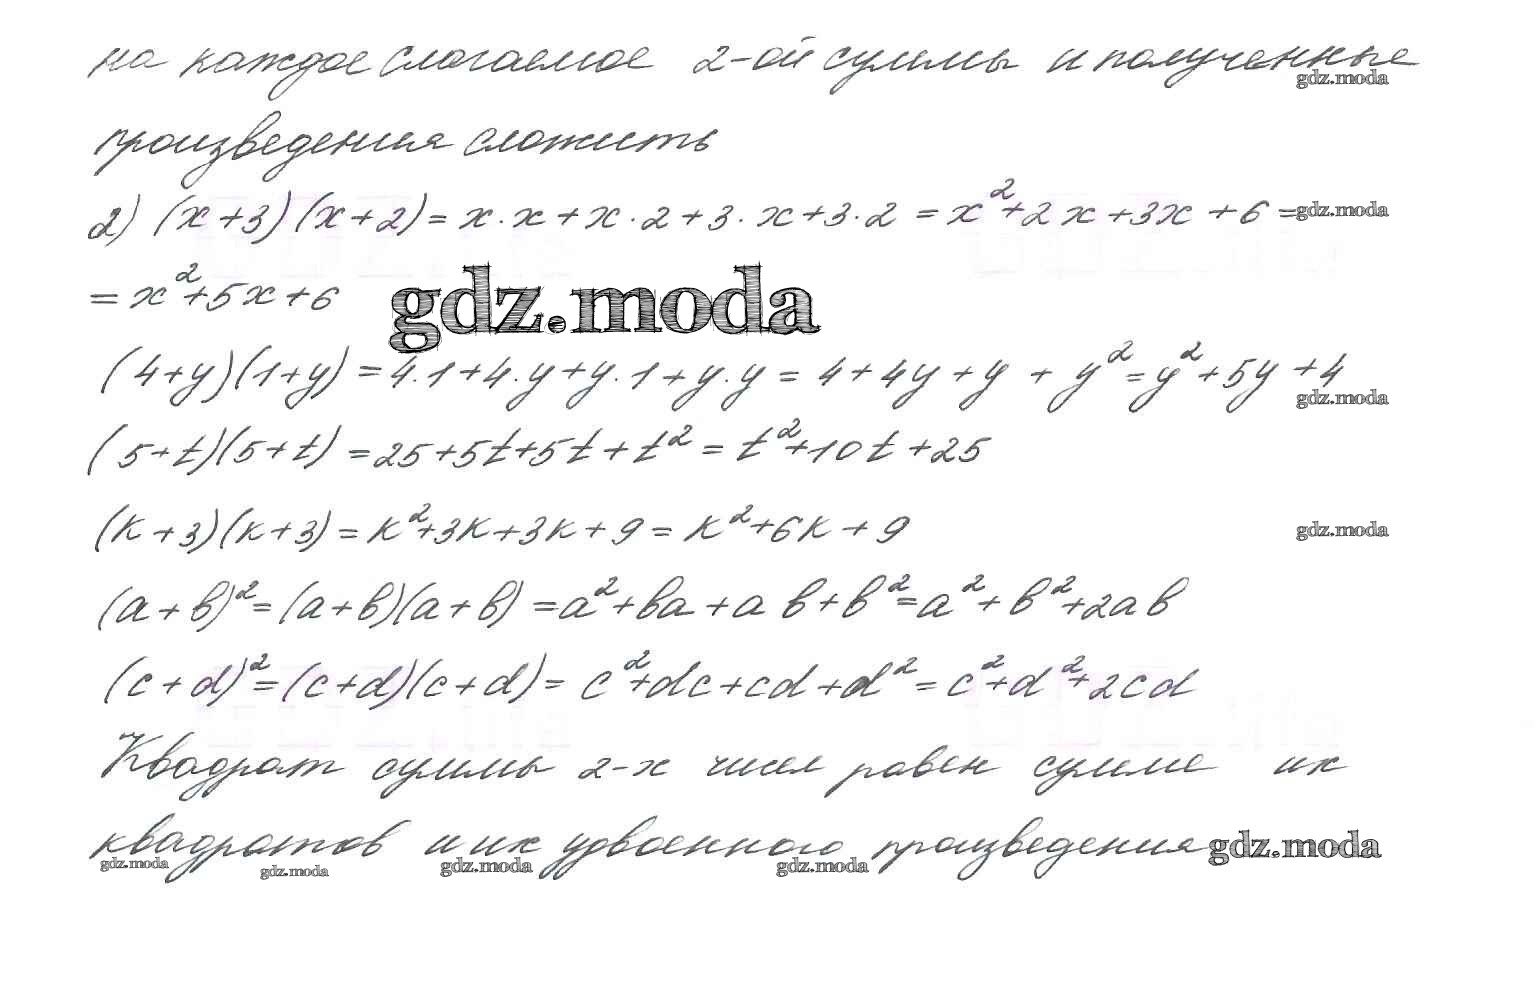 на каждое слагаемое 2-ой суммы и полученные
gdz.moda
произведения сложить
2) (x+3)(x+2)=x·x+x·2+3·x+3·2=x²+2x+3x+6=
gdz.moda
=x²+5x+6
gdz.moda
(4+y)(1+y)=4·1+4·y+y·1+y·y=4+4y+y+y²=y²+5y+4
gdz.moda
(5+t)(5+t)=25+5t+5t+t²=t²+10t+25
(k+3)(k+3)=k²+3k+3k+9=k²+6k+9
gdz.moda
(a+b)²=(a+b)(a+b)=a²+ba+ab+b²=a²+b²+2ab
(c+d)²=(c+d)(c+d)=c²+dc+cd+d²=c²+d²+2cd
Квадрат суммы 2-х чисел равен сумме их
квадратов и их удвоенного произведения
gdz.moda
gdz.moda gdz.moda gdz.moda gdz.moda